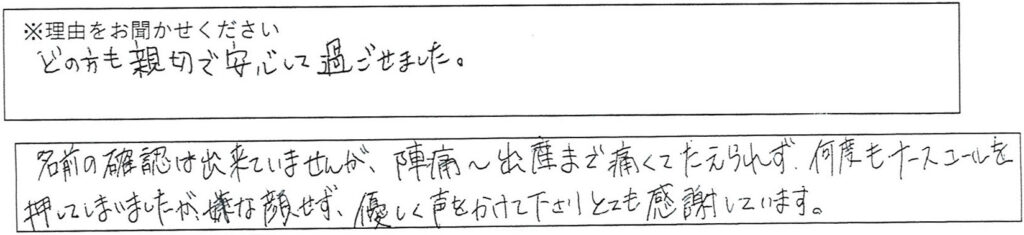 ※理由をお聞かせください
どの方も親切で安心して過ごせました。
名前の確認は出来ていませんが、陣痛～出産まで痛くてたえられず、何度もナースコールを
押してしまいましたが、嫌な顔せず、優しく声をかけて下さりとても感謝しています。